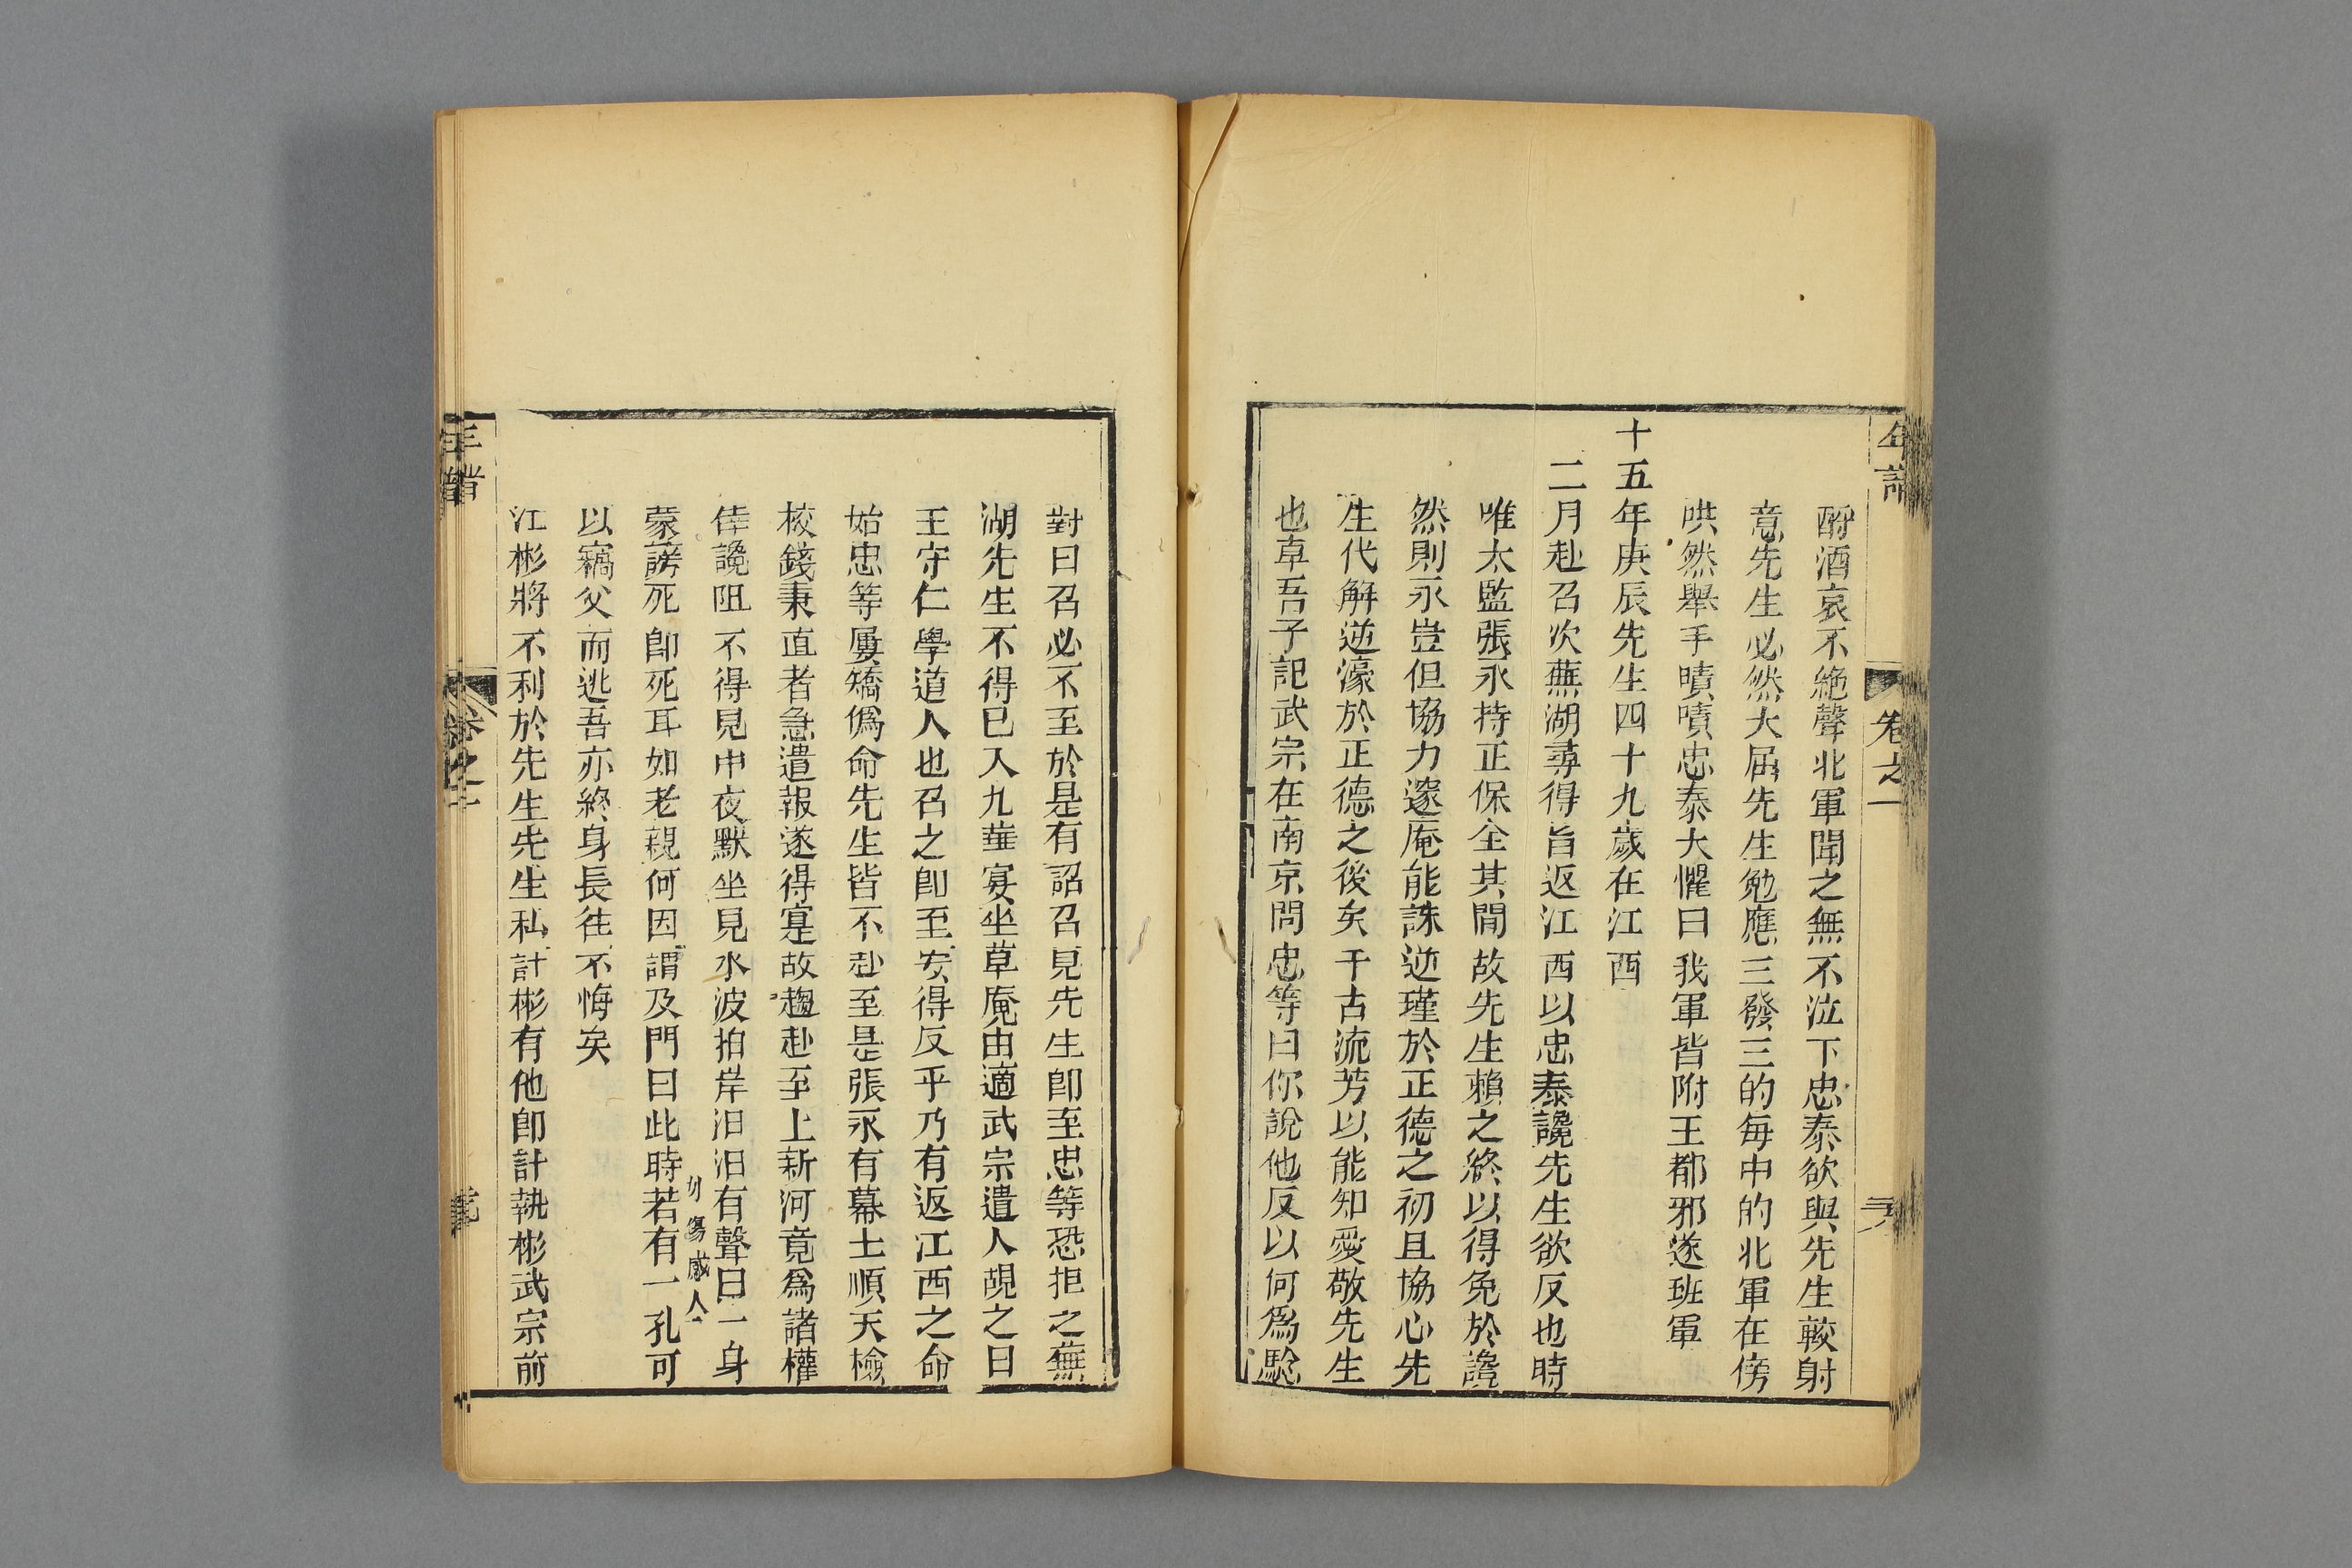 年譜 卷之一 三
酹酒哀不絶聲北軍聞之無不泣下忠泰欲與先生較射
意先生必然大屈先生勉應三發三的每中的北軍在傍
哄然舉手嘖嘖忠泰大懼曰我軍皆附王都邪遂班軍
十五年庚辰先生四十九歲在江西
二月赴召次蕪湖尋得旨返江西以忠泰讒先生欲反也時
唯太監張永持正保全其間故先生賴之終以得免於讒
然則永豈但協力邃庵能誅逆瑾於正德之初且協心先
生代解逆濠於正德之後矣千古流芳以能知愛敬先生
也卓吾子記武宗在南京問忠等曰你說他反以何爲驗
對曰召必不至於是有詔召見先生卽至忠等恐拒之蕪
湖先生不得已入九華宴坐草庵由適武宗遣人覘之曰
王守仁學道人也召之卽至安得反乎乃有返江西之命
始忠等屢矯僞命先生皆不赴至是張永有幕士順天檢
校錢秉直者急遣報遂得寔故趨赴至上新河竟爲諸權
倖讒阻不得見中夜默坐見水波拍岸汩汩有聲曰一身
傷感人
蒙謗死卽死耳如老親何因謂及門曰此時若有一孔可
以竊父而逃吾亦終身長往不悔矣
江彬將不利於先生先生私計彬有他卽計執彬武宗前
年譜 卷之一